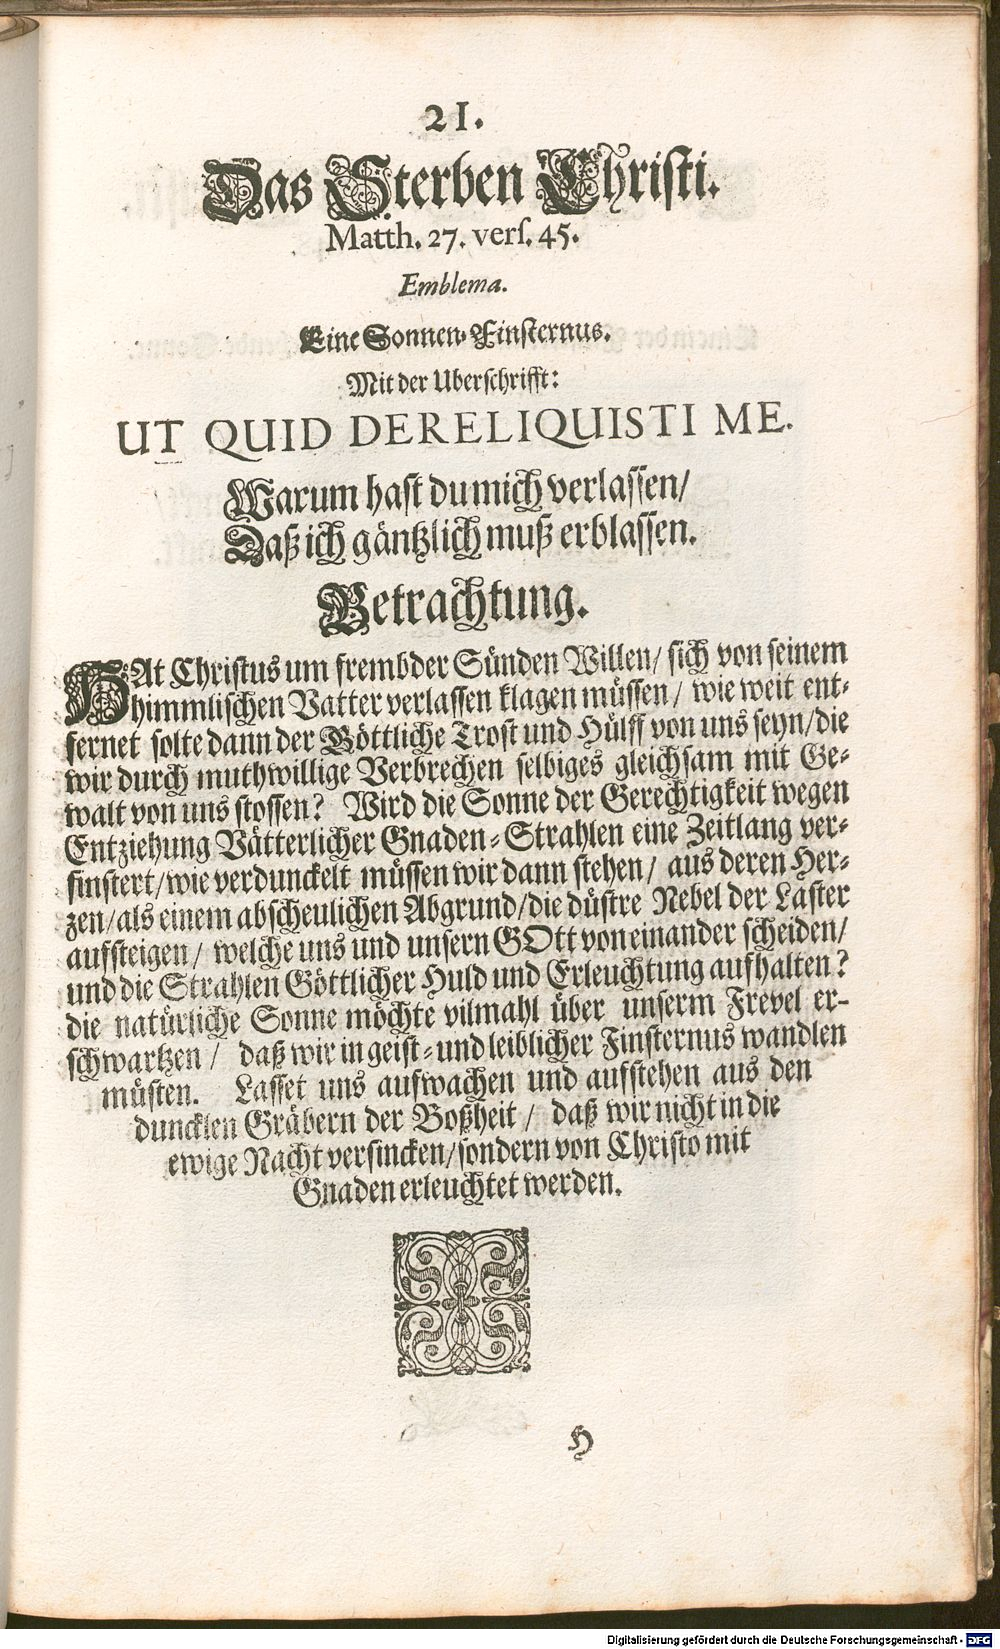 21.
Das Sterben Christi.
Matth. 27. vers. 45.
Emblema.
Eine Sonnen-Finsternus.
Mit der Uberschrifft:
UT QUID DERELIQUISTI ME.
Warum hast du mich verlassen/
Daß ich gäntzlich muß erblassen.
Betrachtung.
HAt Christus um frembder Sünden Willen/ sich von seinem
himmlischen Vatter verlassen klagen müssen/ wie weit ent-
fernet solte dann der Göttliche Trost und Hülff von uns seyn/die
wir durch muthwillige Verbrechen selbiges gleichsam mit Ge-
walt von uns stossen? Wird die Sonne der Gerechtigkeit wegen
Entziehung Vätterlicher Gnaden-Strahlen eine Zeitlang ver-
finstert/wie verdunckelt müssen wir dann stehen/ aus deren Her-
zen/als einem abscheulichen Abgrund/die düstre Nebel der Laster
aufsteigen/ welche uns und unsern GOtt von einander scheiden/
und die Strahlen Göttlicher Huld und Erleuchtung aufhalten?
die natürliche Sonne möchte vilmahl über unserm Frevel er-
schwartzen/ daß wir in geist-und leiblicher Finsternus wandlen
müsten. Lasset uns aufwachen und aufstehen aus den
duncklen Gräbern der Boßheit/ daß wir nicht in die
ewige Nacht versincken/sondern von Christo mit
Gnaden erleuchtet werden.
H
Digitalisierung gefördert durch die Deutsche Forschungsgemeinschaft - DFG